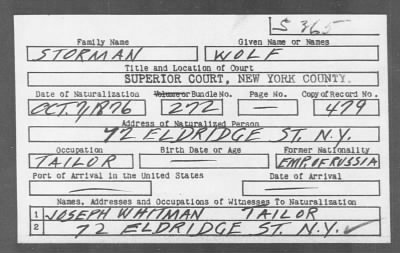 S 365
Family Name Given Name or Names
STORMAN WOLF
Title and Location of Court
SUPERIOR COURT, NEW YORK COUNTY.
Date of Naturalization Volume or Bundle No. Page No. Copy of Record No.
OCT. 7, 1876 272 — 479
Address of Naturalized Person
72 ELDRIDGE ST. N.Y.
Occupation Birth Date or Age Former Nationality
TAILOR — EMP. OF RUSSIA
Port of Arrival in the United States Date of Arrival
— —
Names, Addresses and Occupations of Witnesses To Naturalization
1 JOSEPH WHITMAN TAILOR
2 72 ELDRIDGE ST. N.Y. ✓